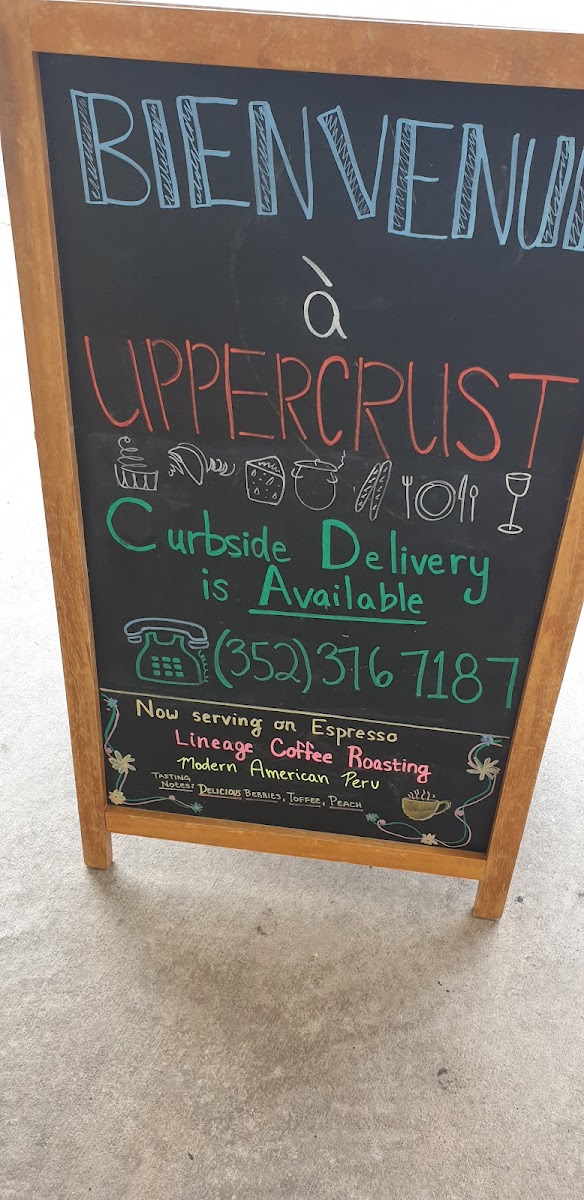 BIENVENUE
à
UPPERCRUST
Curbside Delivery
is Available
(352) 376 7187
Now serving on Espresso
Lineage Coffee Roasting
Modern American Peru
TASTING NOTES: DELICIOUS BERRIES, TOFFEE, PEACH